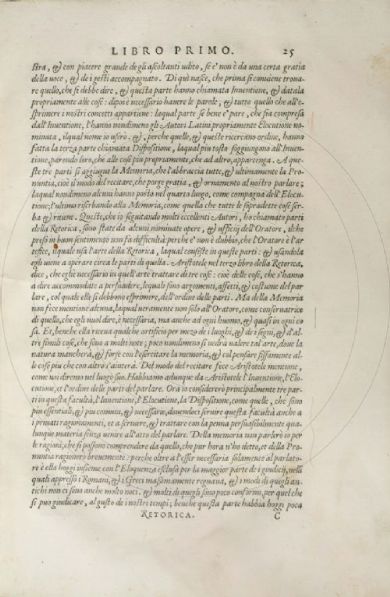 LIBRO PRIMO. 25
stra, & con piacere grande de gli ascoltanti udito, se e' non è da una certa gratia
della voce, & de i gesti accompagnato. Di quì nasce, che prima si conviene trova-
re quello, che si debbe dire, & questa parte hanno chiamata Inventione, & datala
propriamente alle cose: dipoi è necessario havere le parole, & tutto quello che all'e-
sprimere i nostri concetti appartiene: laqual parte se bene e' pare, che sia compresa
dall'Inventione, l'hanno nondimeno gli Autori Latini propriamente Elocutione no-
minata, ilqual nome io userò. &, perche quelle, & queste ricercano ordine, hanno
fatta la terza parte chiamata Dispositione, laqual piu tosto soggiungono all'Inven-
tione, parendo loro, che alle cose piu propriamente, che ad altro, appartenga. A que-
ste tre parti si aggiugne la Memoria, che l'abbraccia tutte, & ultimamente la Pro-
nuntia, cioè il modo del recitare, che porge gratia, & ornamento al nostro parlare;
laqual nondimeno alcuni hanno posta nel quarto luogo, come compagna dell'Elocu-
tione; l'ultimo riserbando alla Memoria, come quella che tutte le sopradette cose ser-
ba & riaune. Queste, che io seguitando molti eccellenti Autori, ho chiamato parti
della Retorica, sono state da alcuni nominate opere, & ufficij dell'Oratore. il che
preso in buon sentimento non fa difficultà perche e' non è dubbio, che l'Oratore è l'ar
tefice, ilquale usa l'arte della Retorica, laqual consiste in queste parti: & usandola
egli viene a operare circa le parti di quella. Aristotele nel terzo libro della Retorica,
dice, che egli è necessario in quell'arte trattare di tre cose: cioè delle cose, che s'hanno
a dire accommodate a persuadere, lequali sono argomenti, affetti, & costume del par-
lare, col quale elle si debbono esprimere, dell'ordine delle parti. Ma della Memoria
non fece mentione alcuna, laqual veramente non solo all'Oratore, come conservatrice
di quello, che egli vuol dire, è necessaria, ma anche ad ogni huomo, & quasi in ogni co
sa. Et, benche ella riceva qualche artificio per mezo de i luoghi, & de i segni, & d'al-
tre simili cose, che sono a molti note; poco nondimeno si vedra valere tal'arte, dove la
natura mancherà, & forse con l'esercitare la memoria, & col pensare fissamente al-
le cose piu che con altro s'aiuterà. Del modo del recitare fece Aristotele mentione,
come noi diremo nel luogo suo. Habbiamo adunque da Aristotele l'Inventione, l'Elo-
cutione, et l'ordine delle parti del parlare. Ora io considererò principalmente tre par-
ti in questa facultà, l'Inventione, l'Elocutione, la Dispositione, come quelle, che sono
piu essentiali, & piu communi, & necessarie, dovendoci servire questa facultà anche a
i privati ragionamenti, et a scrivere, & trattare con la penna persuasibilmente qua-
lunque materia senza venire all'atto del parlare. Della memoria non parlerò io per
le ragioni, che si possono comprendere da quello, che pur hora n'ho detto, et della Pro-
nuntia ragionerò brevemente: perche oltre a l'esser necessaria solamente al parlato-
re è ella hoggi insieme con l'Eloquenza esclusa per la maggior parte de i giudicij, nelli
quali appresso i Romani, & i Greci massimamente regnava, & i modi di quegli an-
tichi non ci sono anche molto noti, & molti di quegli sono poco conformi, per quel che
si puo giudicare, al gusto de i nostri tempi; benche questa parte habbia hoggi poca
RETORICA. C